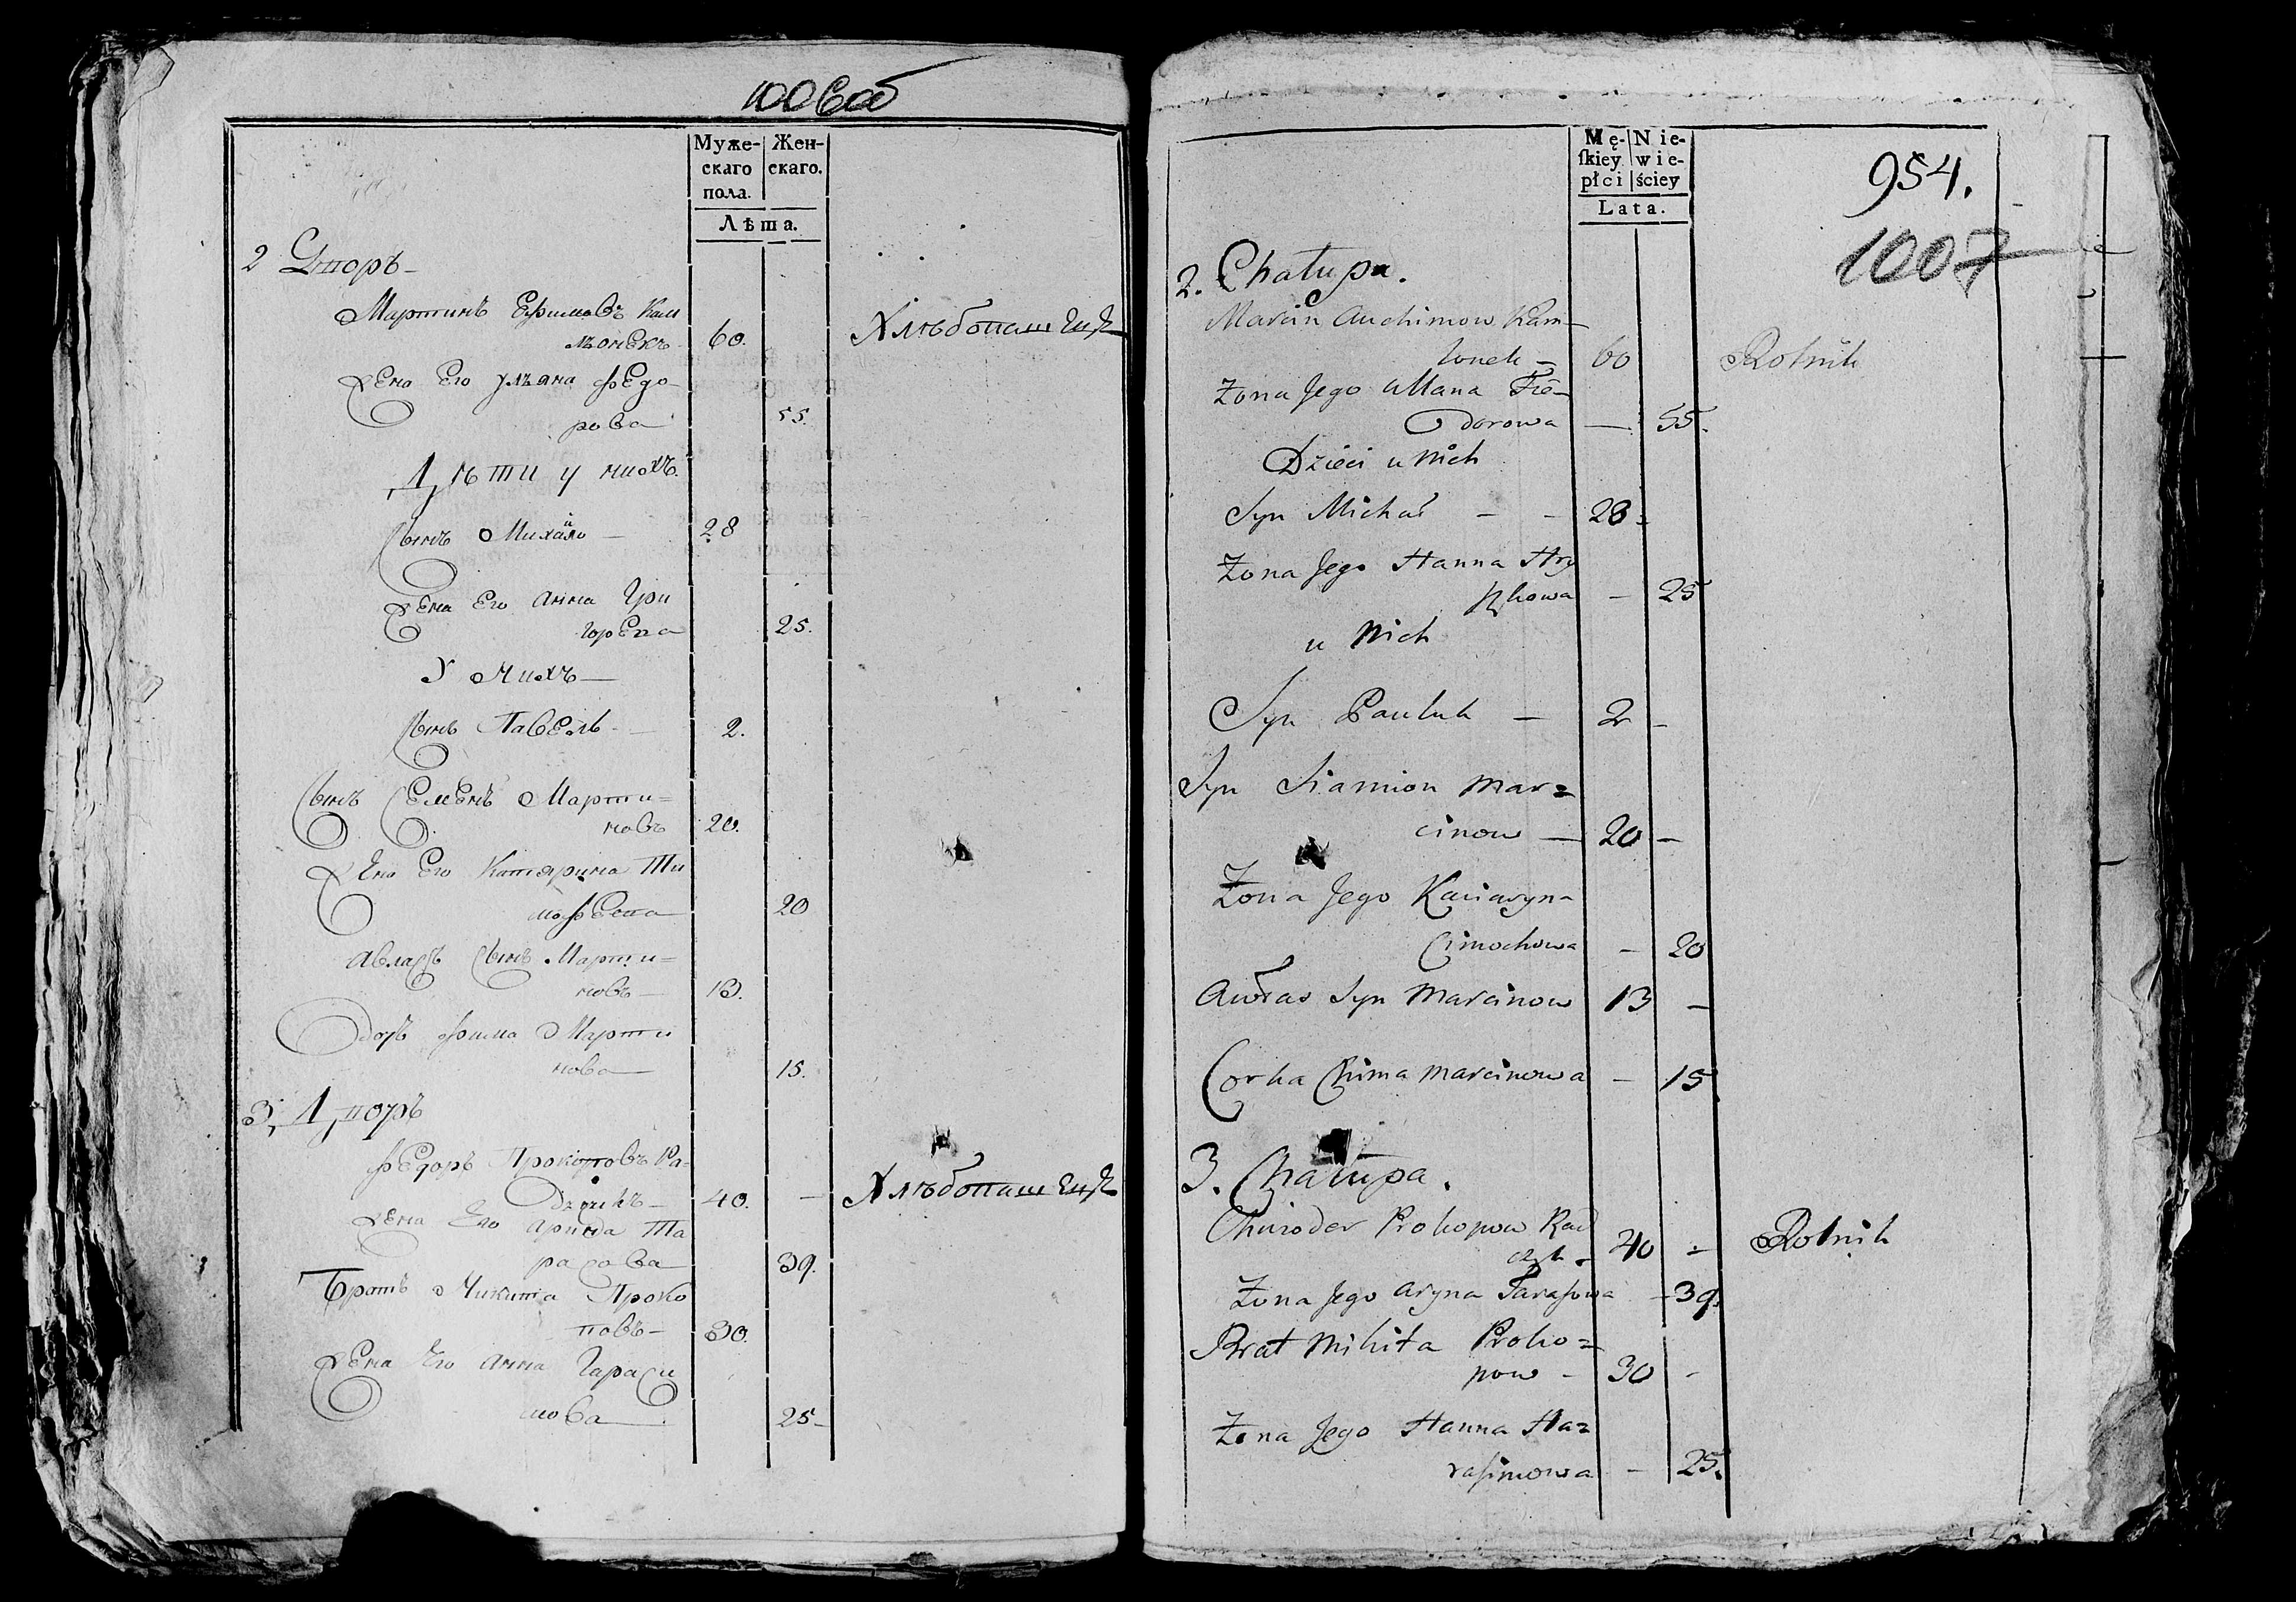 1006об
Муже-
скаго
пола.
Жен-
скаго.
Лѣта.
2 Дворъ
Мартинъ Ефимовъ Кам
лѣонекъ 60.
Хлѣбопашецъ
Жена Его Ульяна Федо-
рова 55.
Дѣти у нихъ
Сынъ Михайло 28
Жена Его Анна Гри
горева 25.
У нихъ
Сынъ Павелъ 2.
Сынъ Семенъ Марти=
новъ 20.
Жена Его Катярина Ти
мофеева 20
Авласъ Сынъ Марти=
новъ 13.
Дочь Фима Марти
нова 15.
3, Дворъ
Федоръ Прокоповъ Ра-
дчикъ 40. —
Хлѣбопашецъ
Жена Его Арина Та
расова 39.
Братъ Микита Проко
повъ 30.
Жена Его Анна Гараси
мова 25
Mę-
skiey
płci
Nie-
wie-
ściey
Lata.
954.
1007
2. Chałupa.
Marcin Auchimow Kam—
lonek — 60
Rolnik
Żona Jego Ullana Fie—
dorowa — 55.
Dzieci u Nich
Syn Michaś — — 28
Żona Jego Hanna Hry
szkowa — 25
u Nich
Syn Pauluk — 2 —
Syn Siamion Mar=
cinow — 20 —
Żona Jego Kaciaryna
Cimochowa — 20
Awłas Syn Marcinow 13 —
Corka Chima Marcinowa — 15
3. Chałupa.
Chwioder Prokopow Rad
czyk 40 —
Rolnik
Żona Jego Aryna Tarasowa — 39.
Brat Mikita Proko=
pow — 30 -
Żona Jego Hanna Ha=
rasimowa — 25.